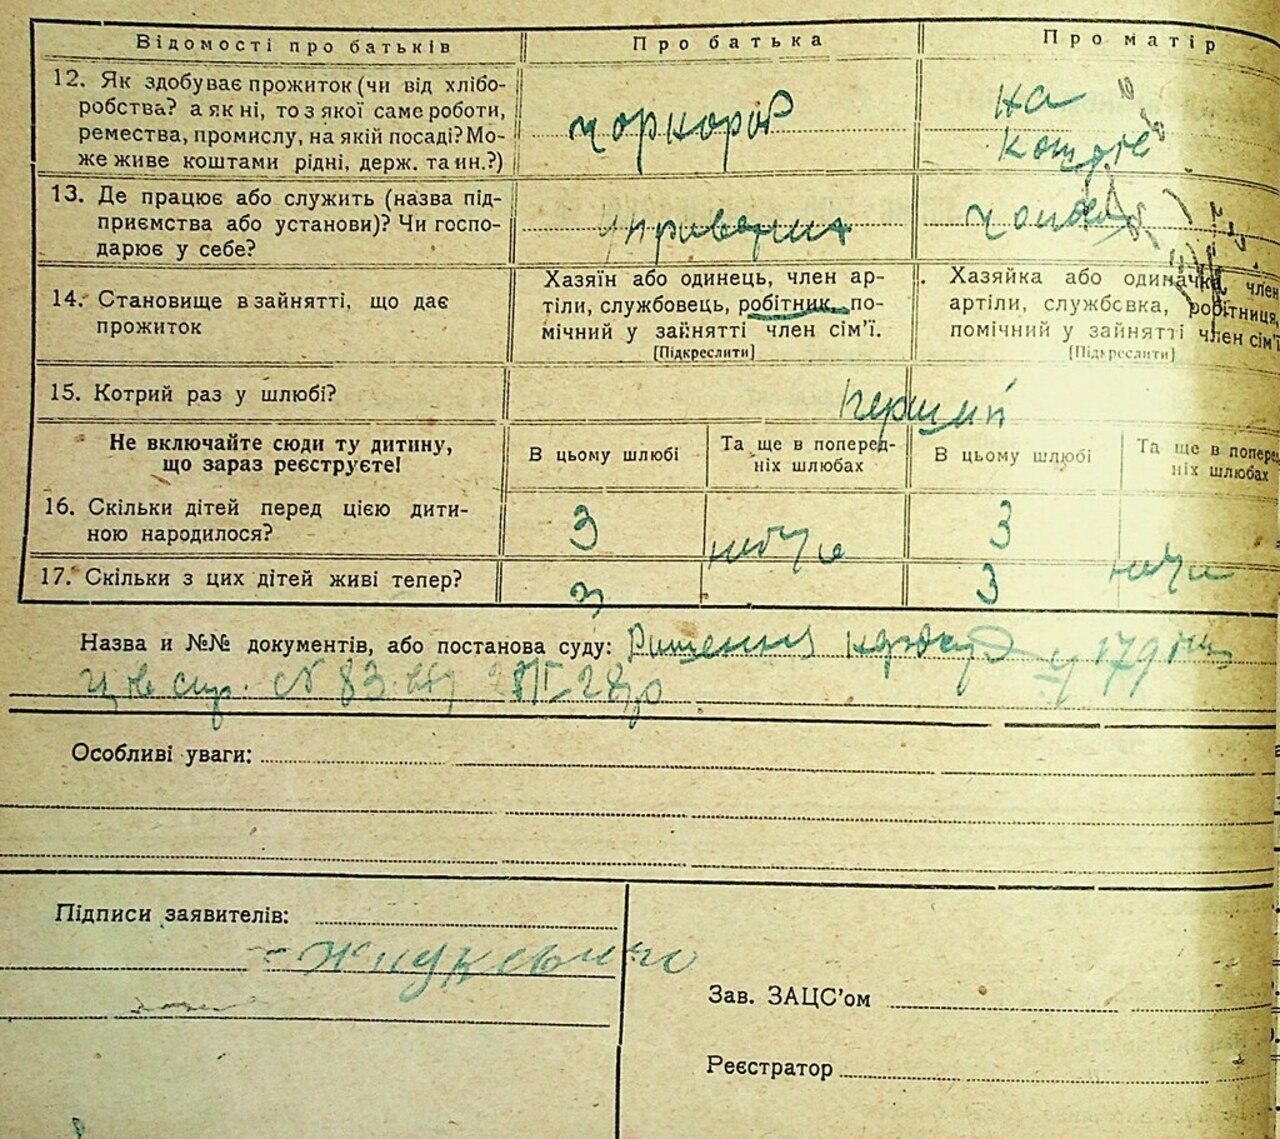 Відомості про батьків
Про батька
Про матір
12. Як здобуває прожиток (чи від хлібо-
робства? а як ні, то з якої саме роботи,
ремества, промислу, на якій посаді? Мо-
же живе коштами рідні, держ. та ин.?)
чорнороб
на
кошти
13. Де працює або служить (назва під-
приємства або установи)? Чи госпо-
дарює у себе?
14. Становище в зайнятті, що дає
прожиток
Хазяїн або одинець, член ар-
тіли, службовець, робітник, по-
мічний у зайнятті член сім'ї.
[Підкреслити]
Хазяйка або одиначка, член
артіли, службовка, робітниця,
помічний у зайнятті член сім'ї
[Підкреслити]
15. Котрий раз у шлюбі?
перший
Не включайте сюди ту дитину,
що зараз реєструєте!
В цьому шлюбі
Та ще в поперед-
ніх шлюбах
В цьому шлюбі
Та ще в поперед
ніх шлюбах
16. Скільки дітей перед цією дити-
ною народилося?
3
3
17. Скільки з цих дітей живі тепер?
3
3
Назва и №№ документів, або постанова суду: Ришення нарсуд
спр. № 83
Особливі уваги:
Підписи заявителів:
Зав. ЗАЦС'ом
Реєстратор